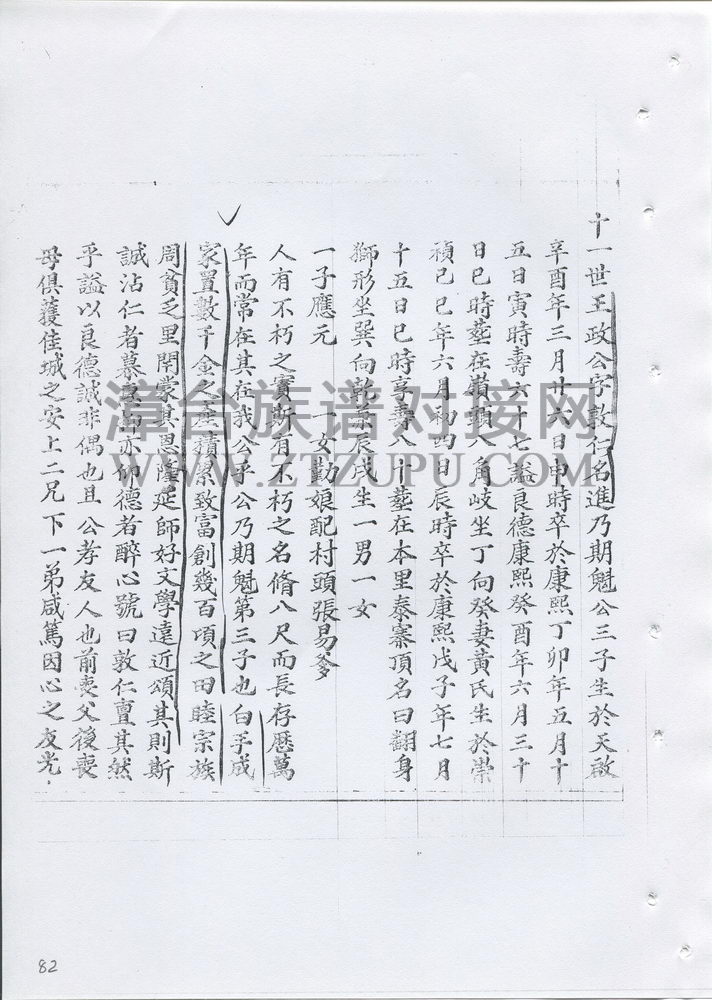 十一世王政公字敦仁名進乃期魁公三子生於天啟
辛酉年三月廿六日申時卒於康熙丁卯年五月十
五日寅時壽六十七謚良德康熙癸酉年六月三十
日巳時塟在嶺頭八角岐坐丁向癸妻黃氏生於崇
禎己巳年六月初四日辰時卒於康熙戊子年七月
十五日巳時享壽八十塟在本里泰寨頂名曰翻身
獅形坐巽向乾兼辰戌生一男一女
一子應元 一女勤娘配村頭張易爹
人有不朽之實斯有不朽之名脩八尺而長存歷萬
年而常在其在我公乎公乃期魁第三子也白手成
家置數千金之產積累致富創幾百頃之田睦宗族
周貧乏里閈蒙其恩隆延師好文學遠近頌其則斯
誠沾仁者慕 亦仰德者醉心號曰敦仁亶其然
乎謚以良德誠非偶也且公孝友人也前喪父後喪
母俱獲佳城之安上二兄下一弟咸篤因心之友光
漳台族谱对接网
WWW.ZTZUPU.COM
82